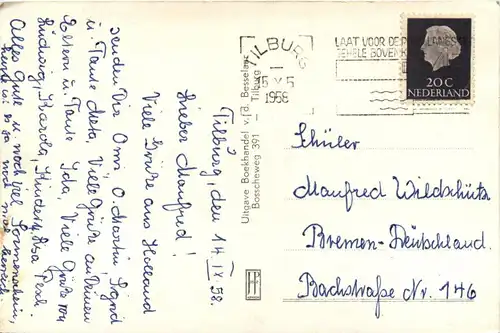 Tilburg, den 14. IX. 58.
Lieber Manfred!
Viele Grüße aus Holland
senden Dir Omi, O. Martin, Sigrid
u. Tante Meta, Viele Grüße an Deinen
Eltern u. Tante Ida, Viele Grüße von
Ludwig, Karola,
Alles Gute u. noch viel Sonnenschein,
Uitgave Boekhandel v/d. Besselaar
Bosscheweg 391 — Tilburg
TILBURG
1958
LAAT VOOR DE
20 C
NEDERLAND
Schüler
Manfred Wildschütz
Bremen-Deutschland.
Bachstraße Nr. 146